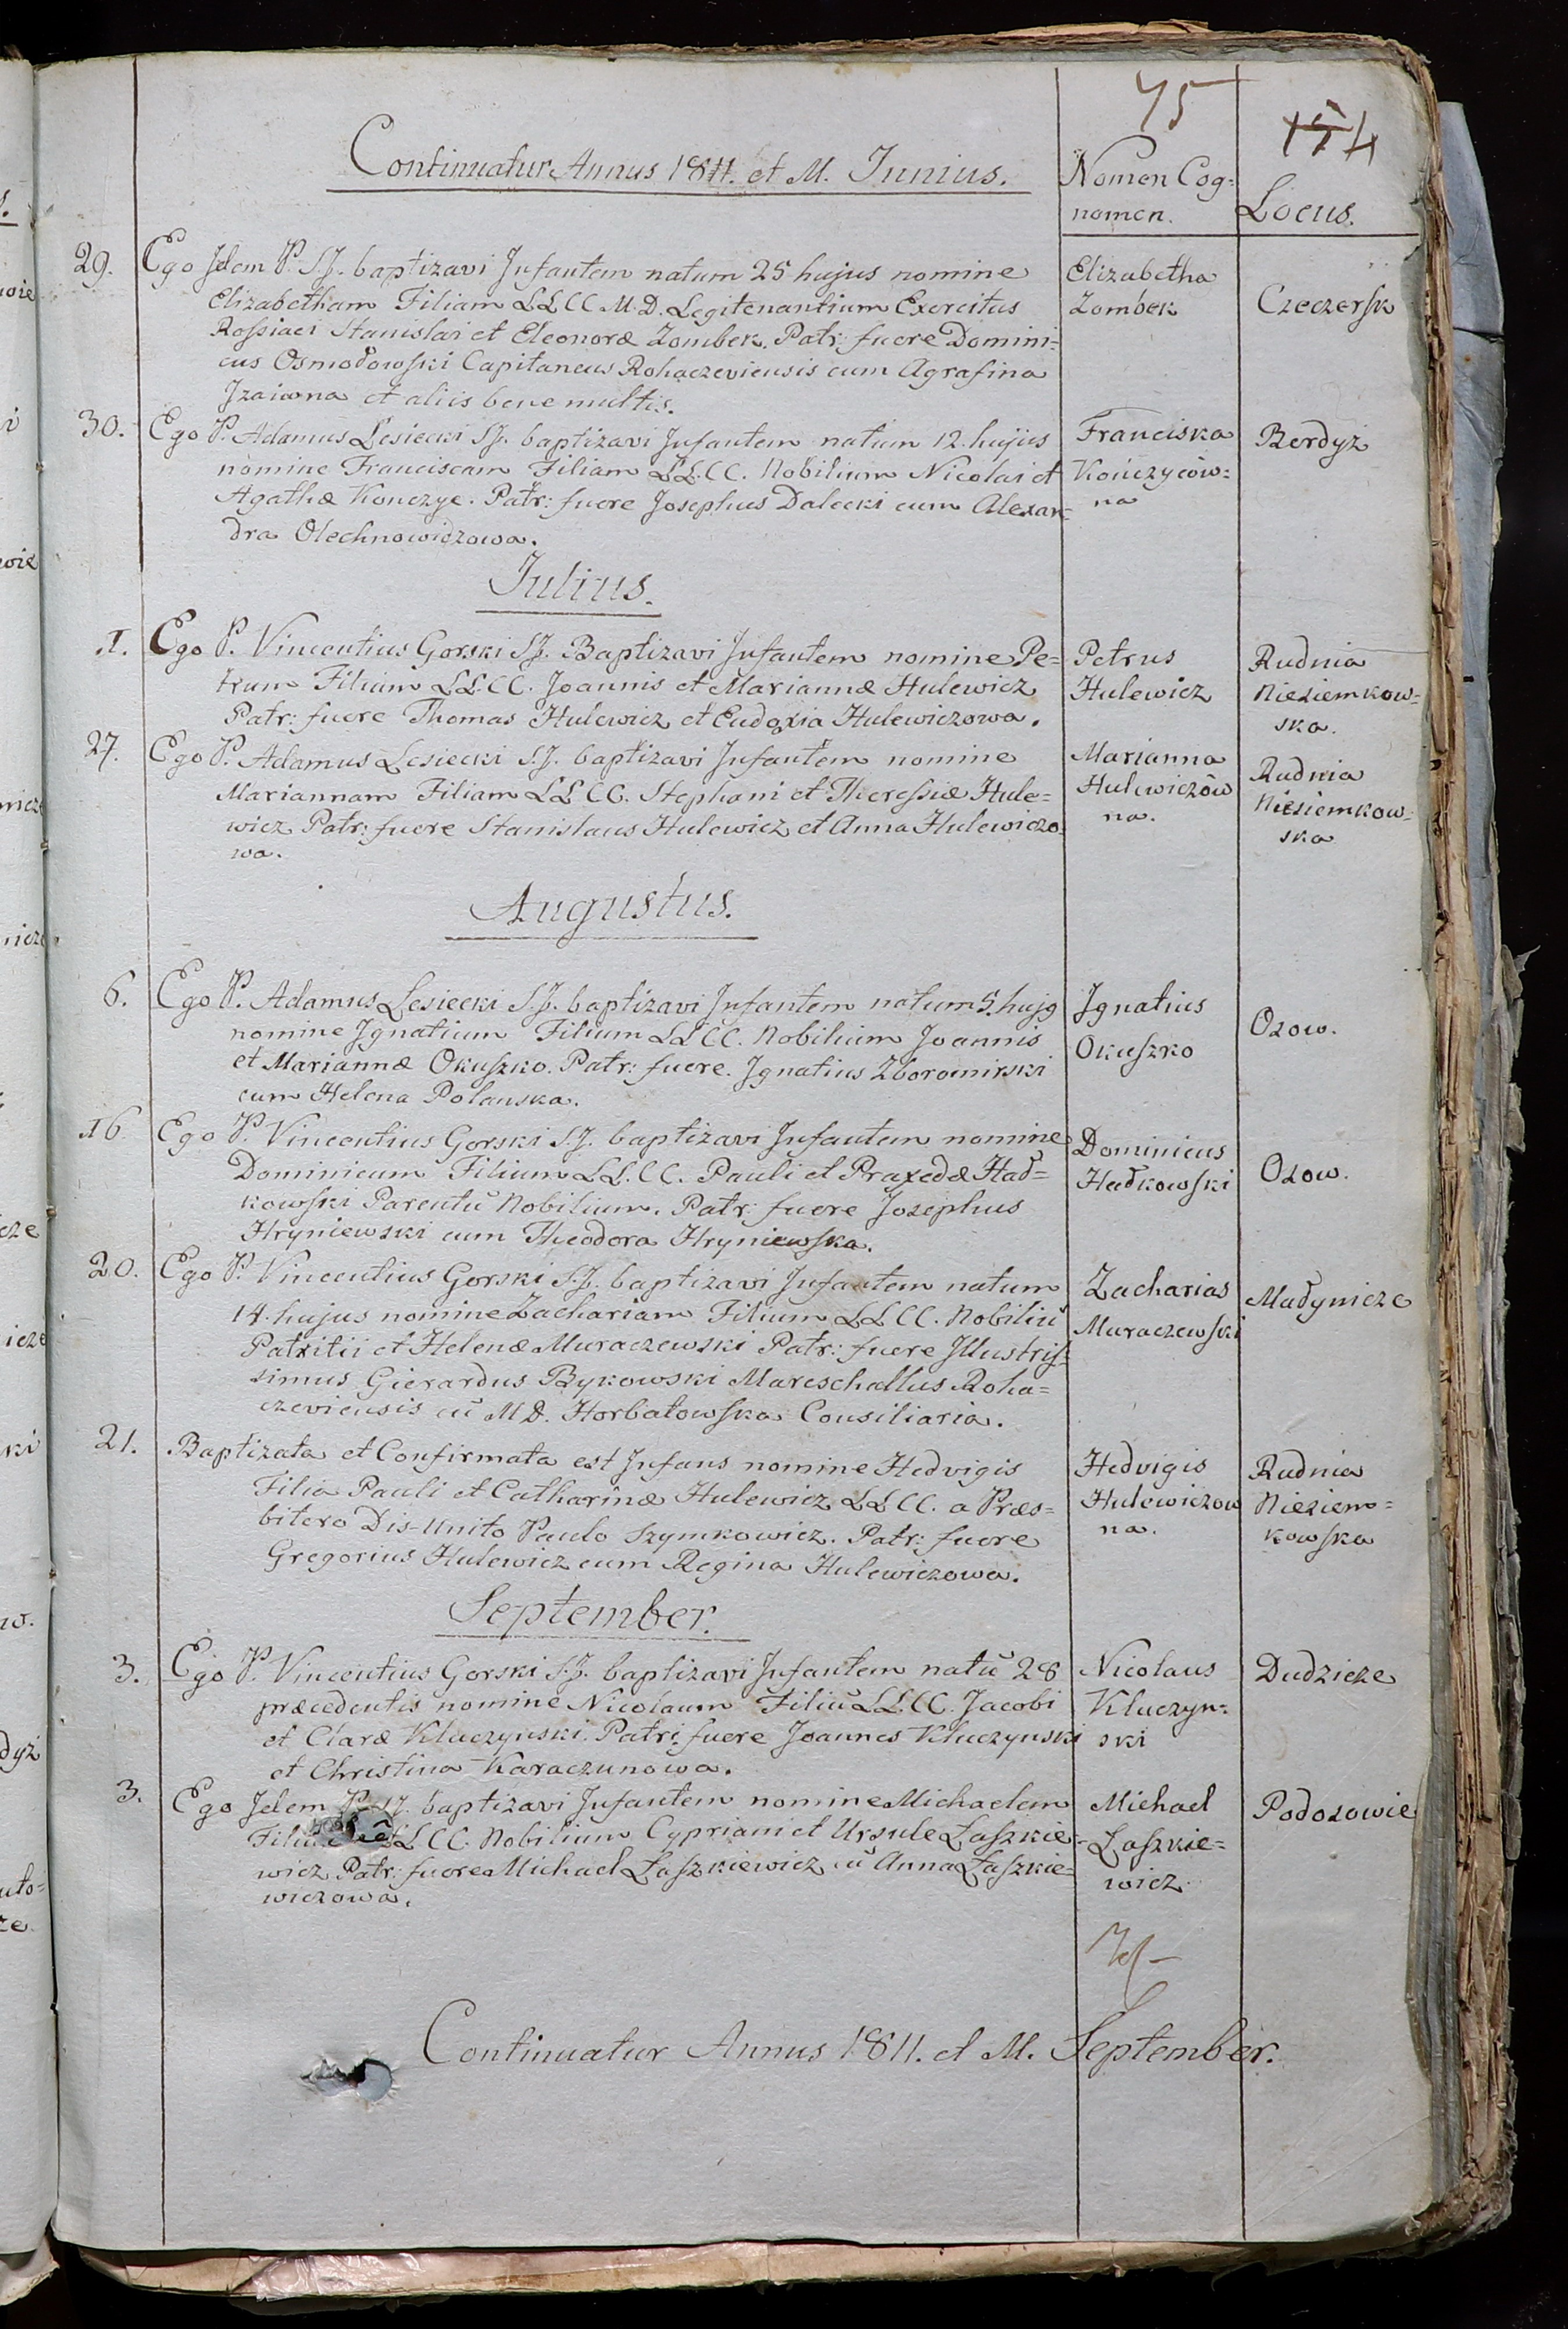 75
154
Continuatur Annus 1811. et M. Junius.
Nomen Cog=
nomen.
Locus.
29. Ego Jdem P. S.J. baptizavi Jnfantem natum 25 hujus nomine
Elizabetham Filiam LLCC M.D. Legitenantium Exercitus
Rossiaci Stanislai et Eleonoræ Zombek. Patr: fuere Domini-
cus Osmołowski Capitaneus Rohaczeviensis cum Agrafina
Jzaiowna et aliis bene multis.
Elizabetha
Zombek
Czeczersk
30. Ego P. Adamus Lesiecki S.J. baptizavi Jnfantem natum 12. hujus
nomine Franciscam Filiam LL.CC. Nobilium Nicolai et
Agathæ Konczyc. Patr: fuere Josephus Dalecki cum Alexan-
dra Olechnowiczowa.
Franciska
Kończyców=
na
Berdyż
Julius.
1. Ego P. Vincentius Gorski S.J. Baptizavi Jnfantem nomine Pe=
trum Filium LL.CC. Joannis et Mariannæ Hulewicz
Patr: fuere Thomas Hulewicz et Eudoxia Hulewiczowa.
Petrus
Hulewicz
Rudnia
Nieziemkow=
ska.
27. Ego P. Adamus Lesiecki S.J. baptizavi Jnfantem nomine
Mariannam Filiam LL CC. Stephani et Theressiæ Hule=
wicz Patr: fuere Stanislaus Hulewicz et Anna Hulewiczo-
wa.
Marianna
Hulewiczów
na.
Rudnia
Niesiemkow-
ska
Augustus.
6. Ego P. Adamus Lesiecki S.J. baptizavi Jnfantem natum 5. hujg
nomine Jgnatium Filium LL CC. Nobilium Joannis
et Mariannæ Okuszko. Patr: fuere. Jgnatius Zboromirski
cum Helena Polanska.
Jgnatius
Okuszko
Ozow.
16 Ego P. Vincentius Gorski S.J. baptizavi Jnfantem nomine
Dominicum Filium LL.CC. Pauli et Praxedæ Hał=
kowski Parentũ Nobilium. Patr: fuere Josephus
Hryniewski cum Theodora Hryniewska.
Dominicus
Hałkowski
Ozow.
20. Ego P. Vincentius Gorski S.J. baptizavi Jnfantem natum
14. hujus nomine Zachariam Filium LL CC. Nobiliũ
Patritii et Helenæ Muraczewski Patr: fuere Jllustris-
simus Gierardus Bykowski Mareschallus Roha=
czeviensis cũ M.D. Horbatowska Consiliaria.
Zacharias
Muraczewski
Małynicze
21. Baptizata et Confirmata est Jnfans nomine Hedvigis
Filia Pauli et Catharinæ Hulewicz LL CC. a Præs=
bitero Dis-Unito Paulo Szymkowicz. Patr: fuere
Gregorius Hulewicz cum Regina Hulewiczowa.
Hedvigis
Hulewiczow
na.
Rudnia
Nieziem=
kowska
September.
3. Ego P. Vincentius Gorski S.J. baptizavi Jnfantem natũ 28
præcedentis nomine Nicolaum Filiũ LL.CC. Jacobi
et Claræ Kluczynski. Patr: fuere Joannes Kluczynski
et Christina Karaczunowa.
Nicolaus
Kluczyn=
ski
Dudzicze
3. Ego Jdem P. S.J. baptizavi Jnfantem nomine Michaelem
LL CC. Nobilium Cypriani et Ursule Łaszkie=
wicz Patr: fuere Michael Łaszkiewicz cũ Anna Łaszkie=
wiczowa.
Michael
Łaszkie=
wicz
Podozowie
Continuatur Annus 1811. et M. September.